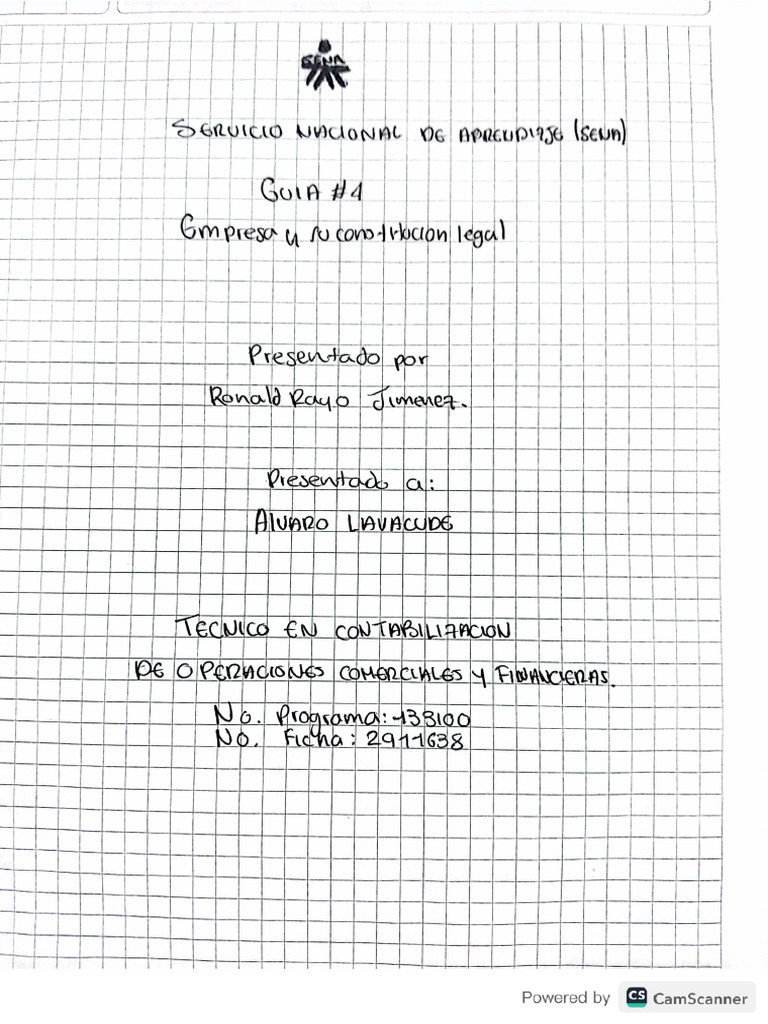 SENA
SERVICIO NACIONAL DE APRENDIZJE (SENA)
GUIA #1
Empresa y su constitucion legal
Presentado por
Ronald Rayo Jimenez.
Presentado a:
Alvaro LAVACUDE
TECNICO EN CONTABILIZACION
DE OPERACIONES COMERCIALES Y FINANCIERAS.
No. Programa: 133100
No. Ficha: 2911638
Powered by CS CamScanner